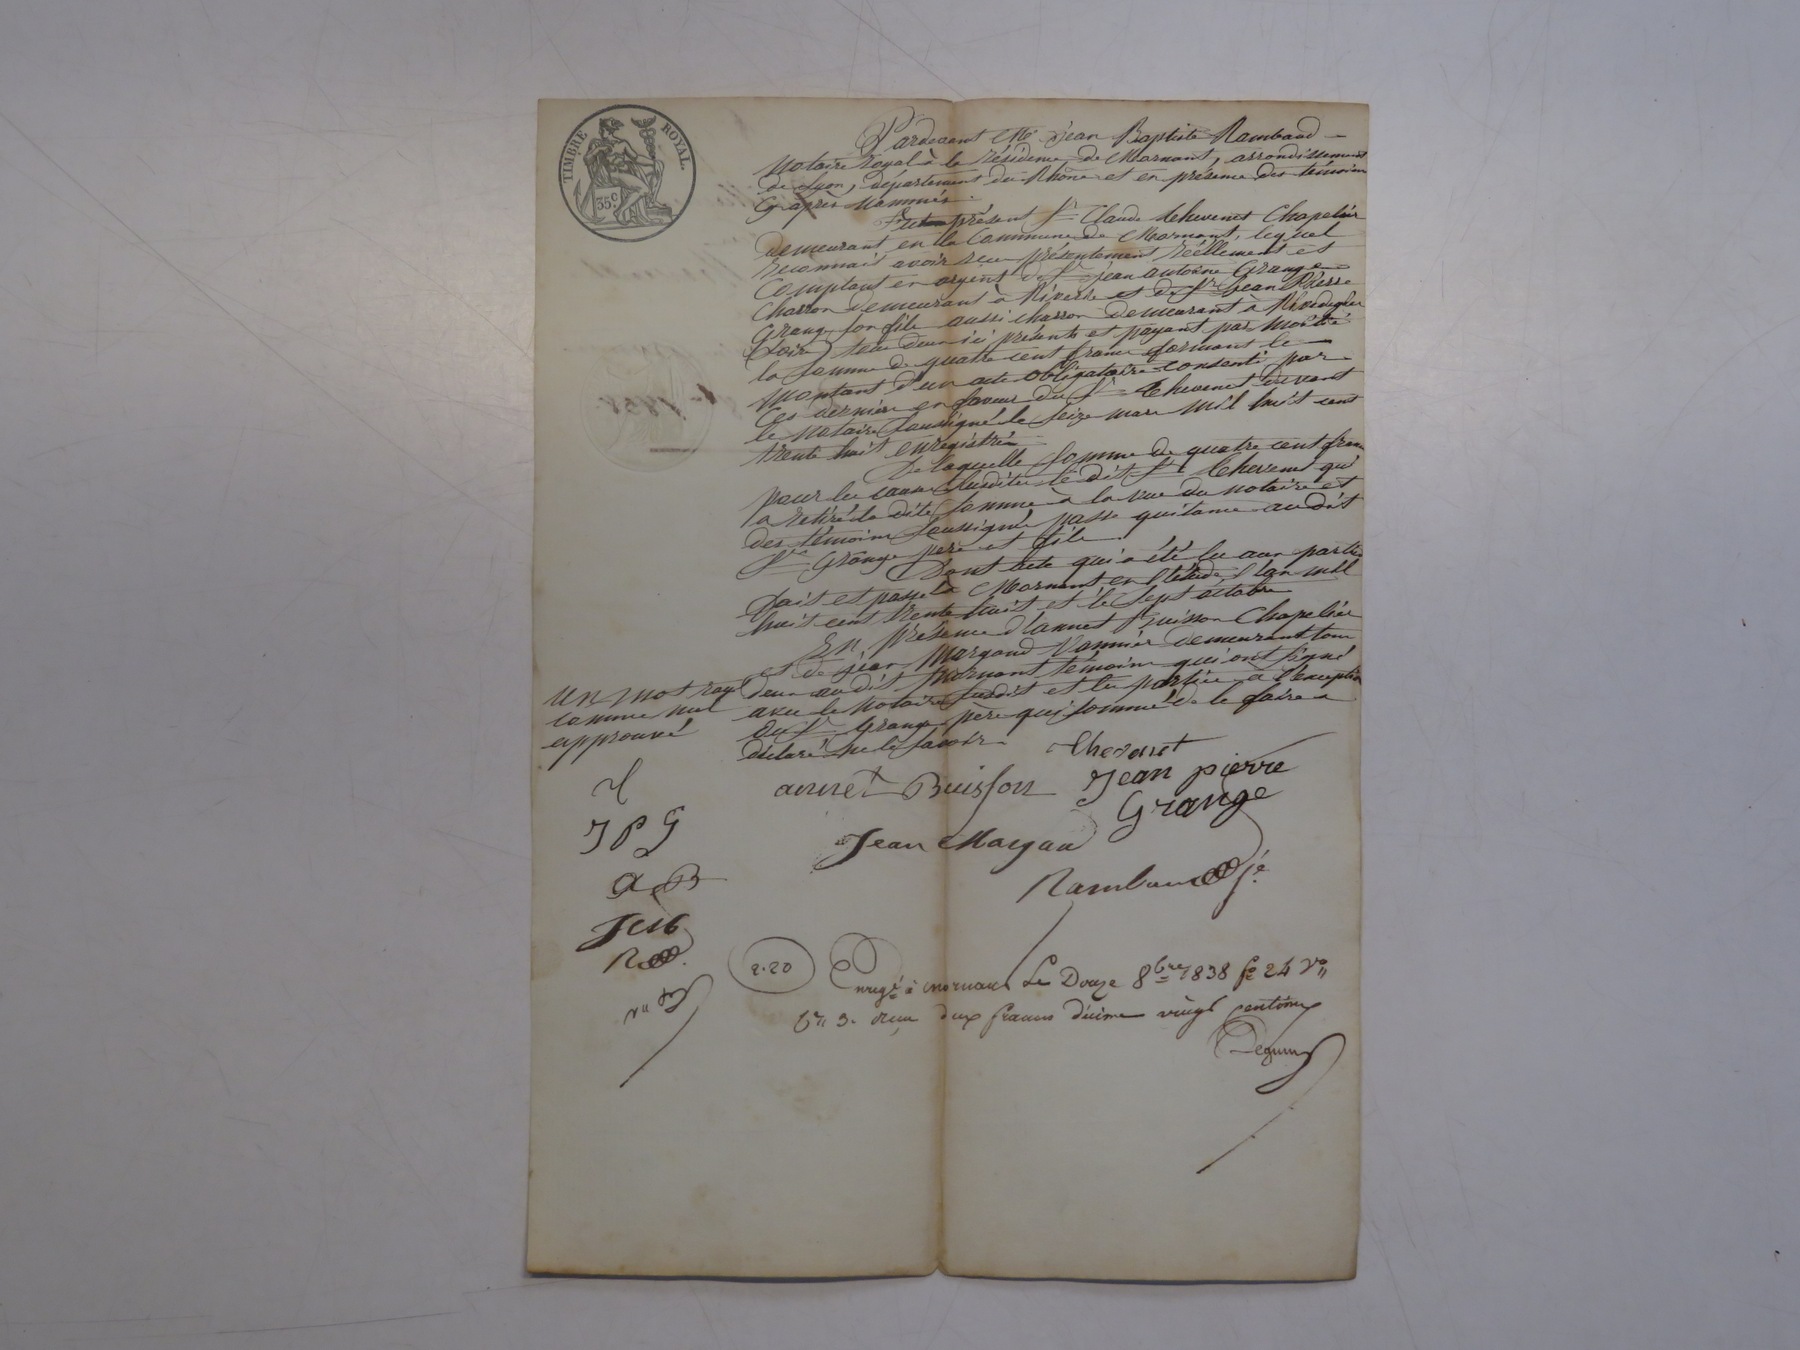 TIMBRE ROYAL
35 c
Pardevant Me Jean Baptiste Rambaud
Notaire Royal à la résidence de Mornant, arrondissement
de Lyon, département du Rhône et en présence des témoins
cy après nommés.
Fut présent Sr Claude Chevenet Chapelier
demeurant en la Commune de Mornant, lequel
reconnait avoir reçu présentement réellement et
Comptant en argent du Sr Jean antoine Grange
Charron demeurant à Riverie et de Sr Jean Pierre
Grange son fils aussi charron demeurant à Rivedegier
(Loire) tous deux ici présents et payant par moitié
la somme de quatre cent francs formant le
montant d'un acte obligatoire consenti par
Ces derniers en faveur du Sr Chevenet devant
le Notaire soussigné le seize mars mil huit cent
trente huit enregistré
De laquelle somme de quatre cent francs
pour les causes susdites le dit Sr Chevenet qui
a retiré la dite somme à la vue du notaire et
des témoins soussignés passe quitance au dit
Srs Grange père et fils.
Dont acte qui a été lu aux parties
fait et passé à Mornant en l'étude, l'an mil
huit cent trente huit et le sept octobre
En présence d'annet Buisson Chapelier
et de jean Margaud Vannier demeurant tous
deux au dit Mornant témoins qui ont signé
avec le Notaire susdit et les parties à l'exception
du Sr Grange père qui sommé de le faire a
déclaré ne le savoir
un mot rayé
comme nul
approuvé
Chevenet
annet Buisson
Jean pierre
Grange
Jean Margaud
Rambaud
JPG
a B
2.20
Enregé à mornant Le Douze 8bre 1838 fo 24 Vo
Ce 3. reçu deux francs décime vingt centimes